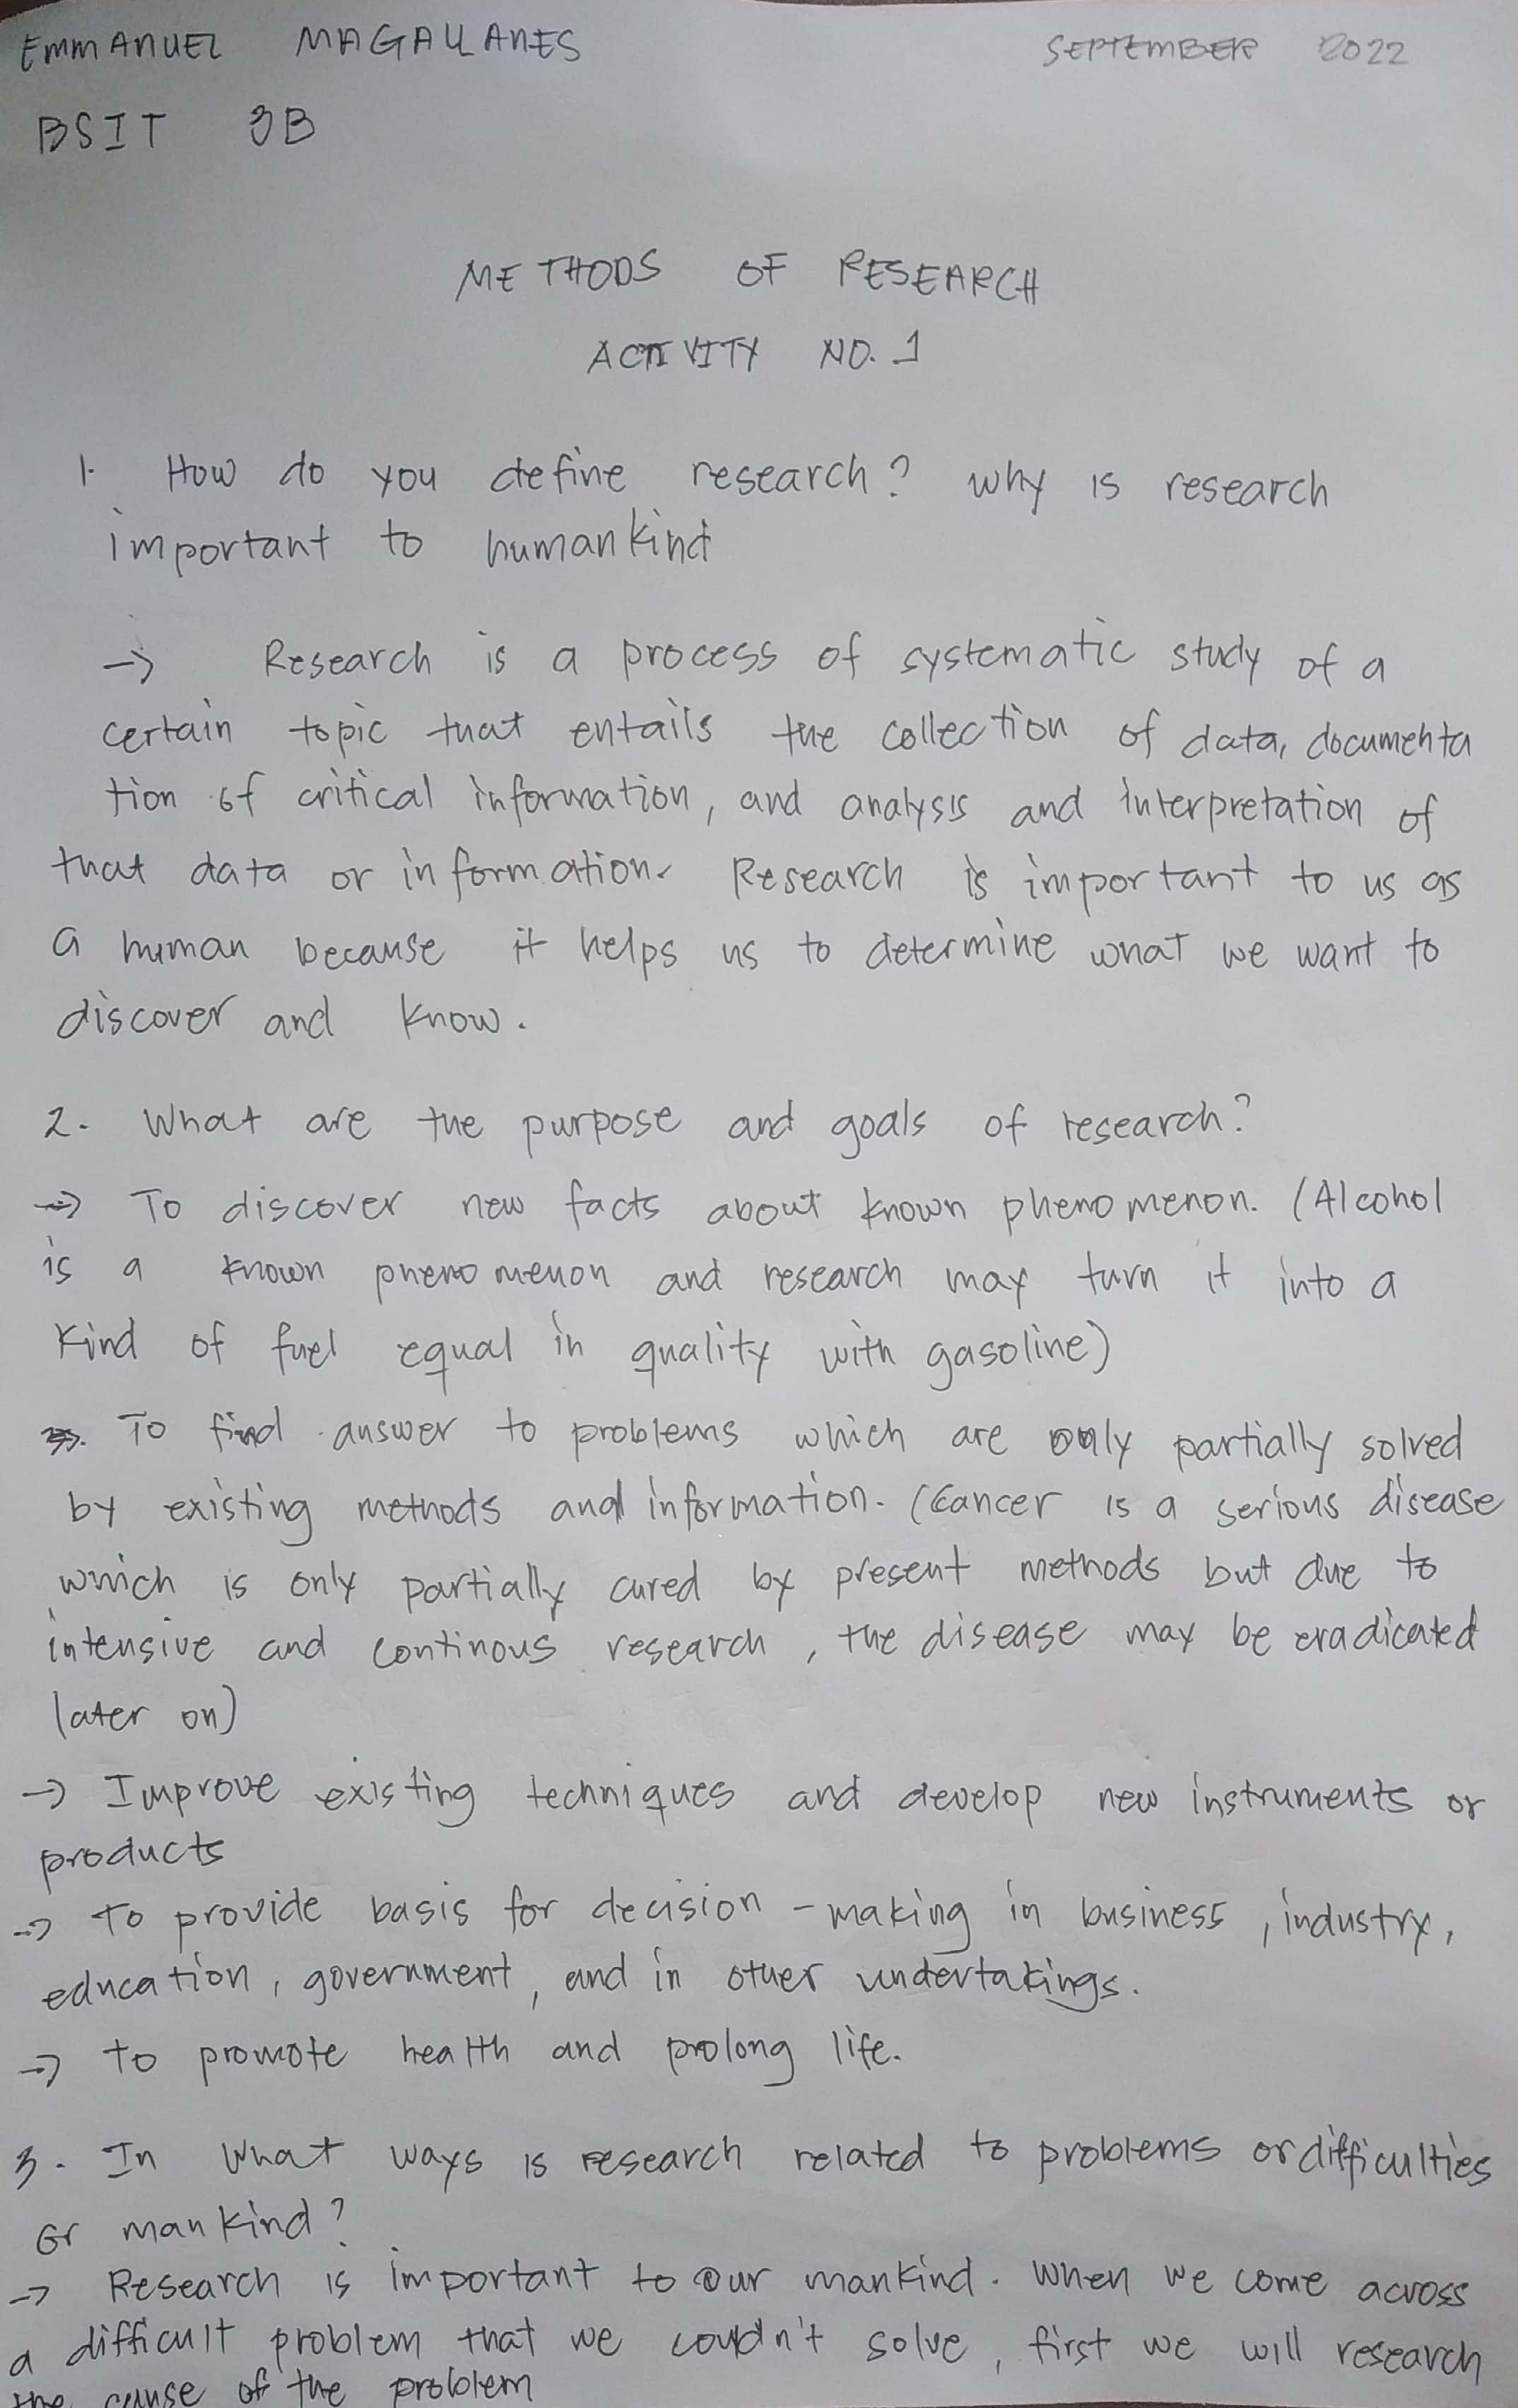 EMMANUEL MAGALLANES SEPTEMBER 2022
BSIT 3B
METHODS OF RESEARCH
ACTIVITY NO. 1
1. How do you define research? why is research
important to humankind
→ Research is a process of systematic study of a
certain topic that entails the collection of data, documenta
tion of critical information, and analysis and interpretation of
that data or information. Research is important to us as
a human because it helps us to determine what we want to
discover and know.
2. What are the purpose and goals of research?
→ To discover new facts about known phenomenon. (Alcohol
is a known phenomenon and research may turn it into a
kind of fuel equal in quality with gasoline)
→. To find answer to problems which are only partially solved
by existing methods and information. (Cancer is a serious disease
which is only partially cured by present methods but due to
intensive and continous research, the disease may be eradicated
later on)
→ Improve existing techniques and develop new instruments or
products
→ To provide basis for decision-making in business, industry,
education, government, and in other undertakings.
→ to promote health and prolong life.
3. In what ways is research related to problems or difficulties
or mankind?
→ Research is important to our mankind. When we come across
a difficult problem that we couldn't solve, first we will research
the cause of the problem